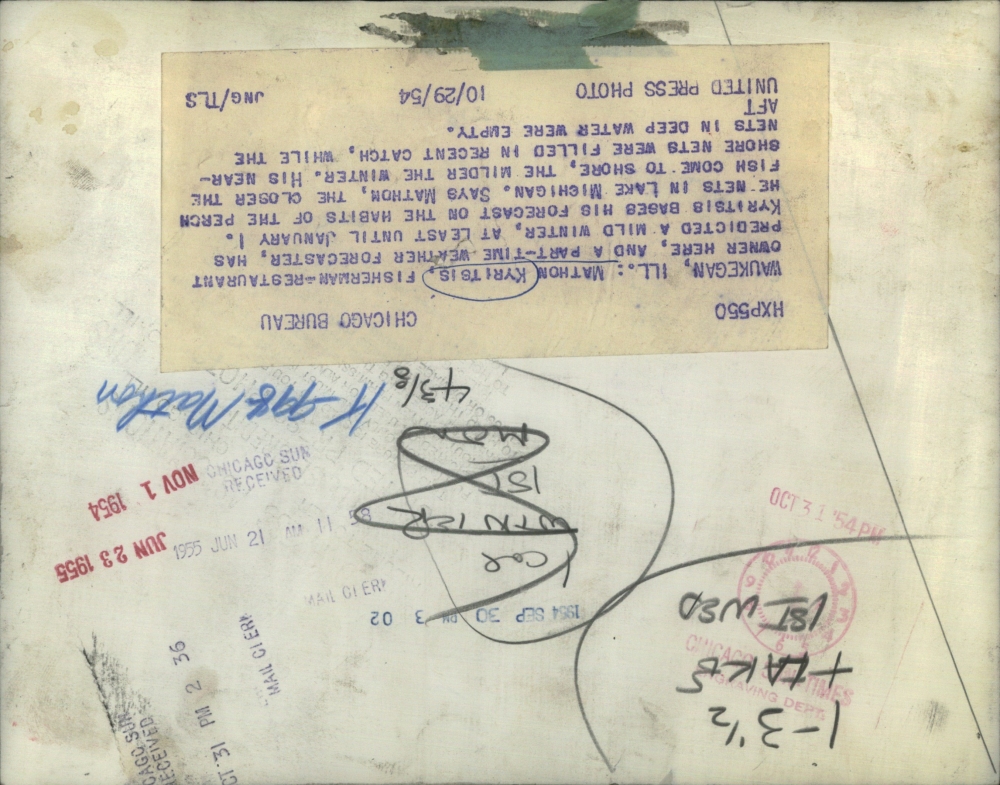 HXP550 CHICAGO BUREAU
WAUKEGAN, ILL.: MATHON KYRITSIS, FISHERMAN-RESTAURANT
OWNER HERE, AND A PART-TIME WEATHER FORECASTER, HAS
PREDICTED A MILD WINTER, AT LEAST UNTIL JANUARY 1.
KYRITSIS BASES HIS FORECAST ON THE HABITS OF THE PERCH
HE NETS IN LAKE MICHIGAN. SAYS MATHON, THE CLOSER THE
FISH COME TO SHORE, THE MILDER THE WINTER. HIS NEAR-
SHORE NETS WERE FILLED IN RECENT CATCH, WHILE THE
NETS IN DEEP WATER WERE EMPTY.
AFT
UNITED PRESS PHOTO 10/29/54 JNG/TLS
1-3 1/2
+ LAKES
1ST WED
1 Col
WINTER
1ST
MON
4 3/8
Mathon
CHICAGO SUN
RECEIVED
NOV 1 1954
JUN 23 1955
1955 JUN 21 AM 11 58
MAIL CLERK
1954 SEP 30 PM 3 02
MAIL CLERK
OCT 31 PM 2 36
RECEIVED
OCT 31 '54 PM
CHICAGO SUN-TIMES
ENGRAVING DEPT.